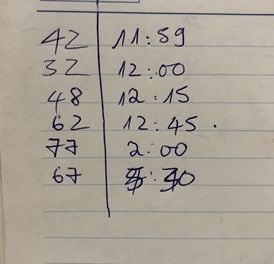 42 11:59
32 12:00
48 12:15
62 12:45.
77 2:00
67